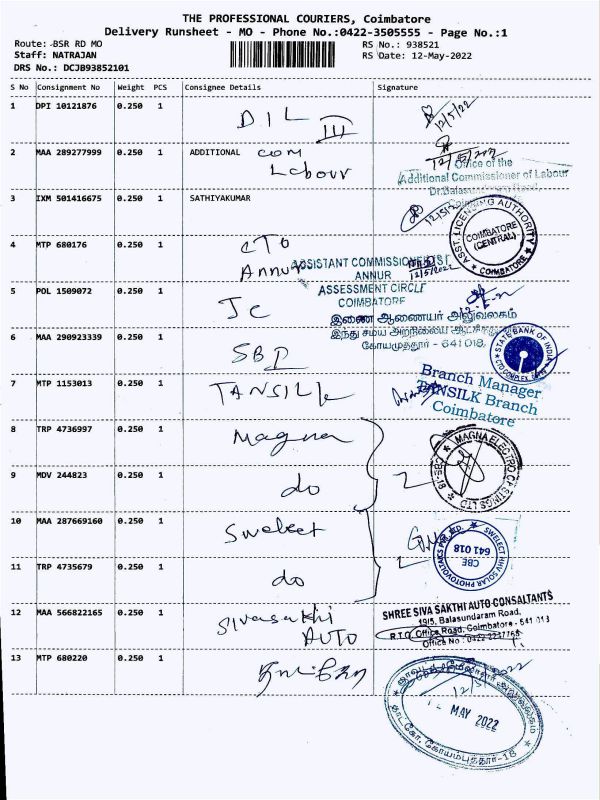 THE PROFESSIONAL COURIERS, Coimbatore
Delivery Runsheet - MO - Phone No.:0422-3505555 - Page No.:1
Route: BSR RD MO
RS No.: 938521
Staff: NATRAJAN
RS Date: 12-May-2022
DRS No.: DCJB93852101
S No Consignment No Weight PCS Consignee Details Signature
1 DPI 10121876 0.250 1 D.I L III
12/5/22
2 MAA 289277999 0.250 1 ADDITIONAL com Labour
Office of the
Additional Commissioner of Labour
3 IXM 501416675 0.250 1 SATHIYAKUMAR
ASST. LICENSING AUTHORITY
COIMBATORE
(CENTRAL)
COIMBATORE
4 MTP 680176 0.250 1 CTO Annur
ASSISTANT COMMISSIONER (ST)
12/5/2022
ANNUR
ASSESSMENT CIRCLE
COIMBATORE
5 POL 1509072 0.250 1 Jc
இணை ஆணையர் அலுவலகம்
இந்து சமய அறநிலைய
கோயமுத்தூர் - 641 018.
6 MAA 290923339 0.250 1 SBI
STATE BANK OF INDIA
7 MTP 1153013 0.250 1 TANSILK
Branch Manager
TANSILK Branch
Coimbatore
8 TRP 4736997 0.250 1 Magna
MAGNA ELECTRO CASTINGS LTD
CBE-18
9 MDV 244823 0.250 1 do
2
10 MAA 287669160 0.250 1 Swelect
SWELECT HHV SOLAR PHOTOVOLTAICS PVT. LTD.
CBE
641 018
11 TRP 4735679 0.250 1 do
2
12 MAA 566822165 0.250 1 Sivasakthi AUTO
SHREE SIVA SAKTHI AUTO CONSALTANTS
19/5, Balasundaram Road,
R.T.O. Office Road, Coimbatore - 641 013
Office No : 0422
13 MTP 680220 0.250 1
12 MAY 2022